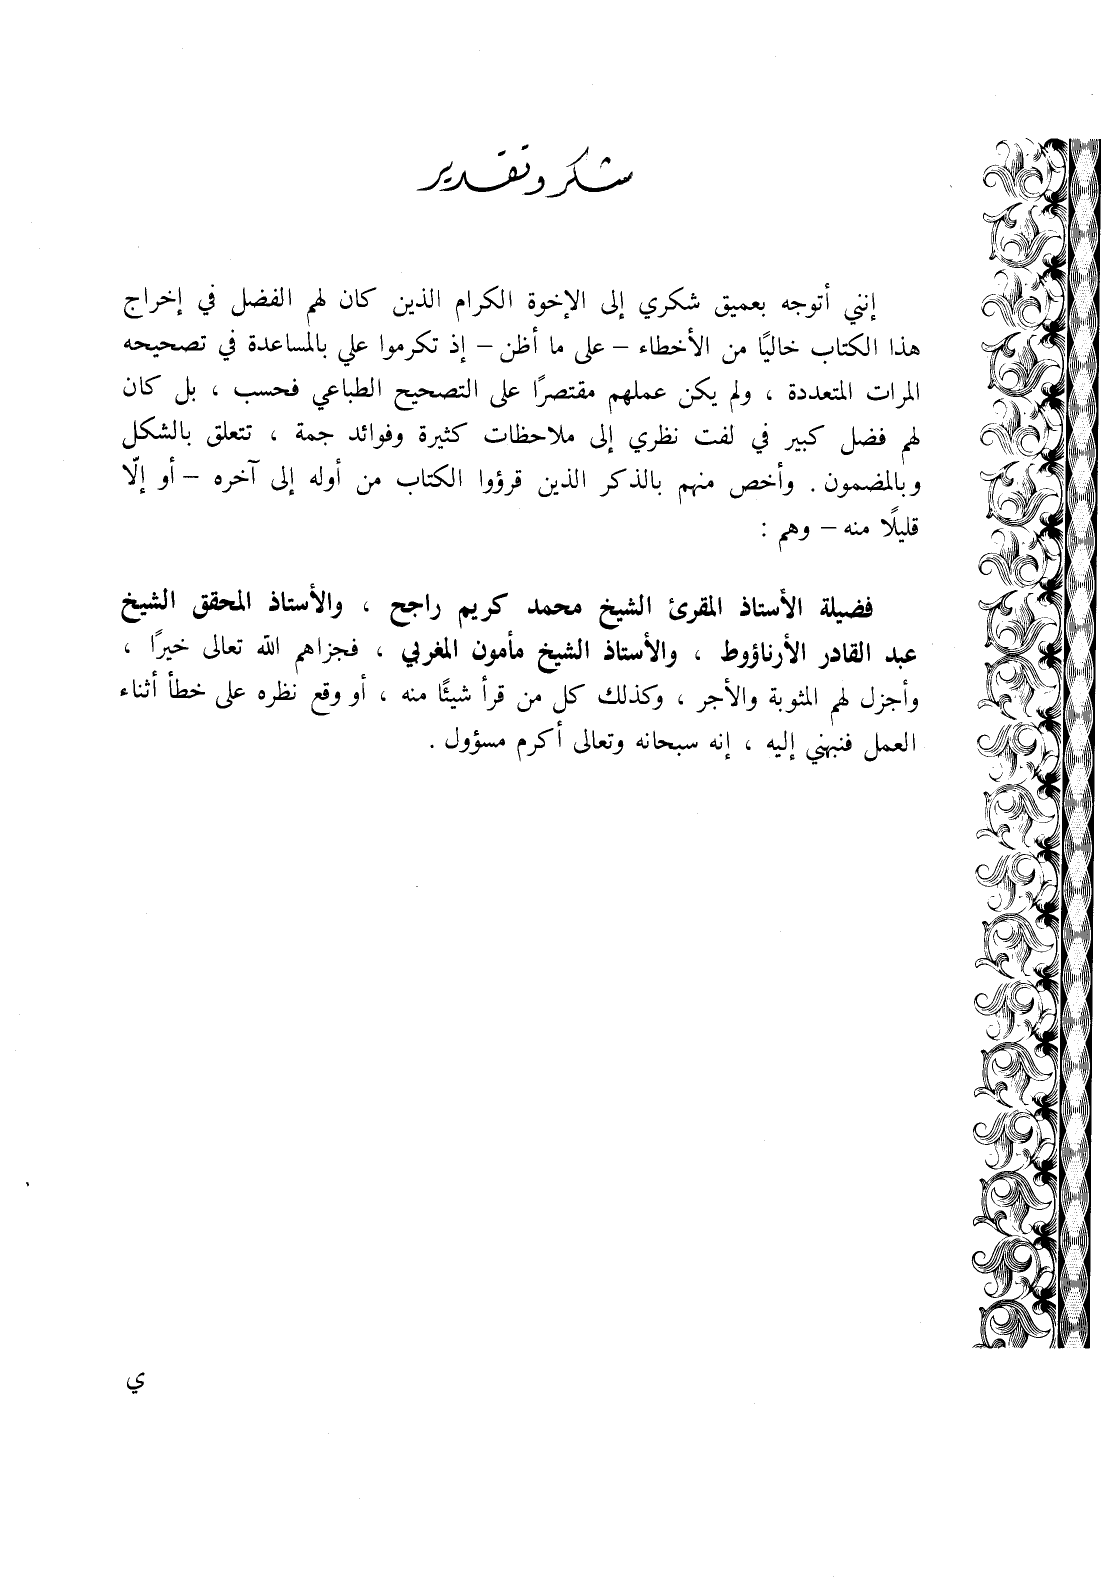 شكر وتقدير
إنني أتوجه بعميق شكري إلى الإخوة الكرام الذين كان لهم الفضل في إخراج
هذا الكتاب خاليًا من الأخطاء – على ما أظن – إذ تكرموا علي بالمساعدة في تصحيحه
المرات المتعددة ، ولم يكن عملهم مقتصرًا على التصحيح الطباعي فحسب ، بل كان
لهم فضل كبير في لفت نظري إلى ملاحظات كثيرة وفوائد جمة ، تتعلق بالشكل
وبالمضمون . وأخص منهم بالذكر الذين قرؤوا الكتاب من أوله إلى آخره – أو إلّا
قليلًا منه – وهم :
فضيلة الأستاذ المقرئ الشيخ محمد كريم راجح ، والأستاذ المحقق الشيخ
عبد القادر الأرناؤوط ، والأستاذ الشيخ مأمون المغربي ، فجزاهم الله تعالى خيرًا ،
وأجزل لهم المثوبة والأجر ، وكذلك كل من قرأ شيئًا منه ، أو وقع نظره على خطأ أثناء
العمل فنبهني إليه ، إنه سبحانه وتعالى أكرم مسؤول .
ي